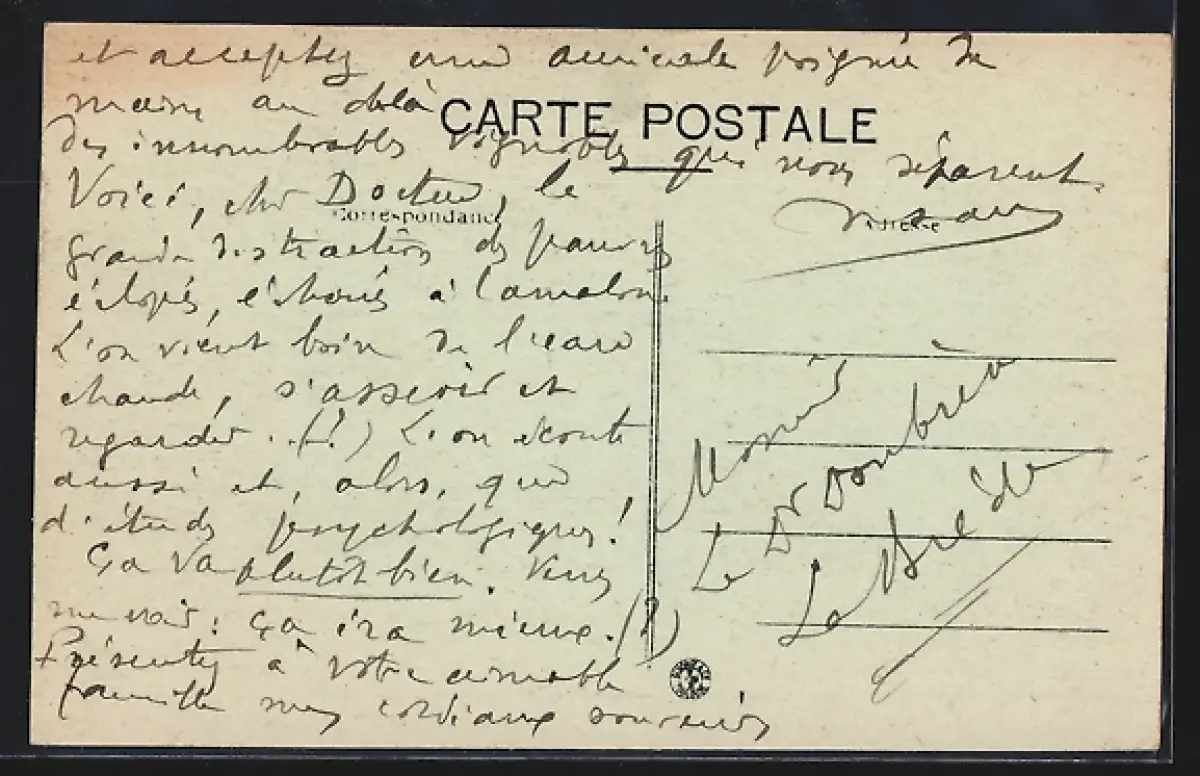 et acceptez une amicale poignée de
mains, au delà
CARTE POSTALE
des innombrables vignobles qui nous séparent.
Voici, cher Docteur, le
Correspondance
Adresse
grande distraction des pauvres
éclopés, échoués à Lamalou.
L'on vient boire de l'eau
chaude, s'asseoir et
regarder. (!) L'on écoute
aussi et, alors, que
d'études psychologiques!
Ça va plutôt bien. Venez
me voir: ça ira mieux. (?)
Présentez à votre aimable
famille mes cordiaux souvenirs
Monsieur
Le Dr
La Brède